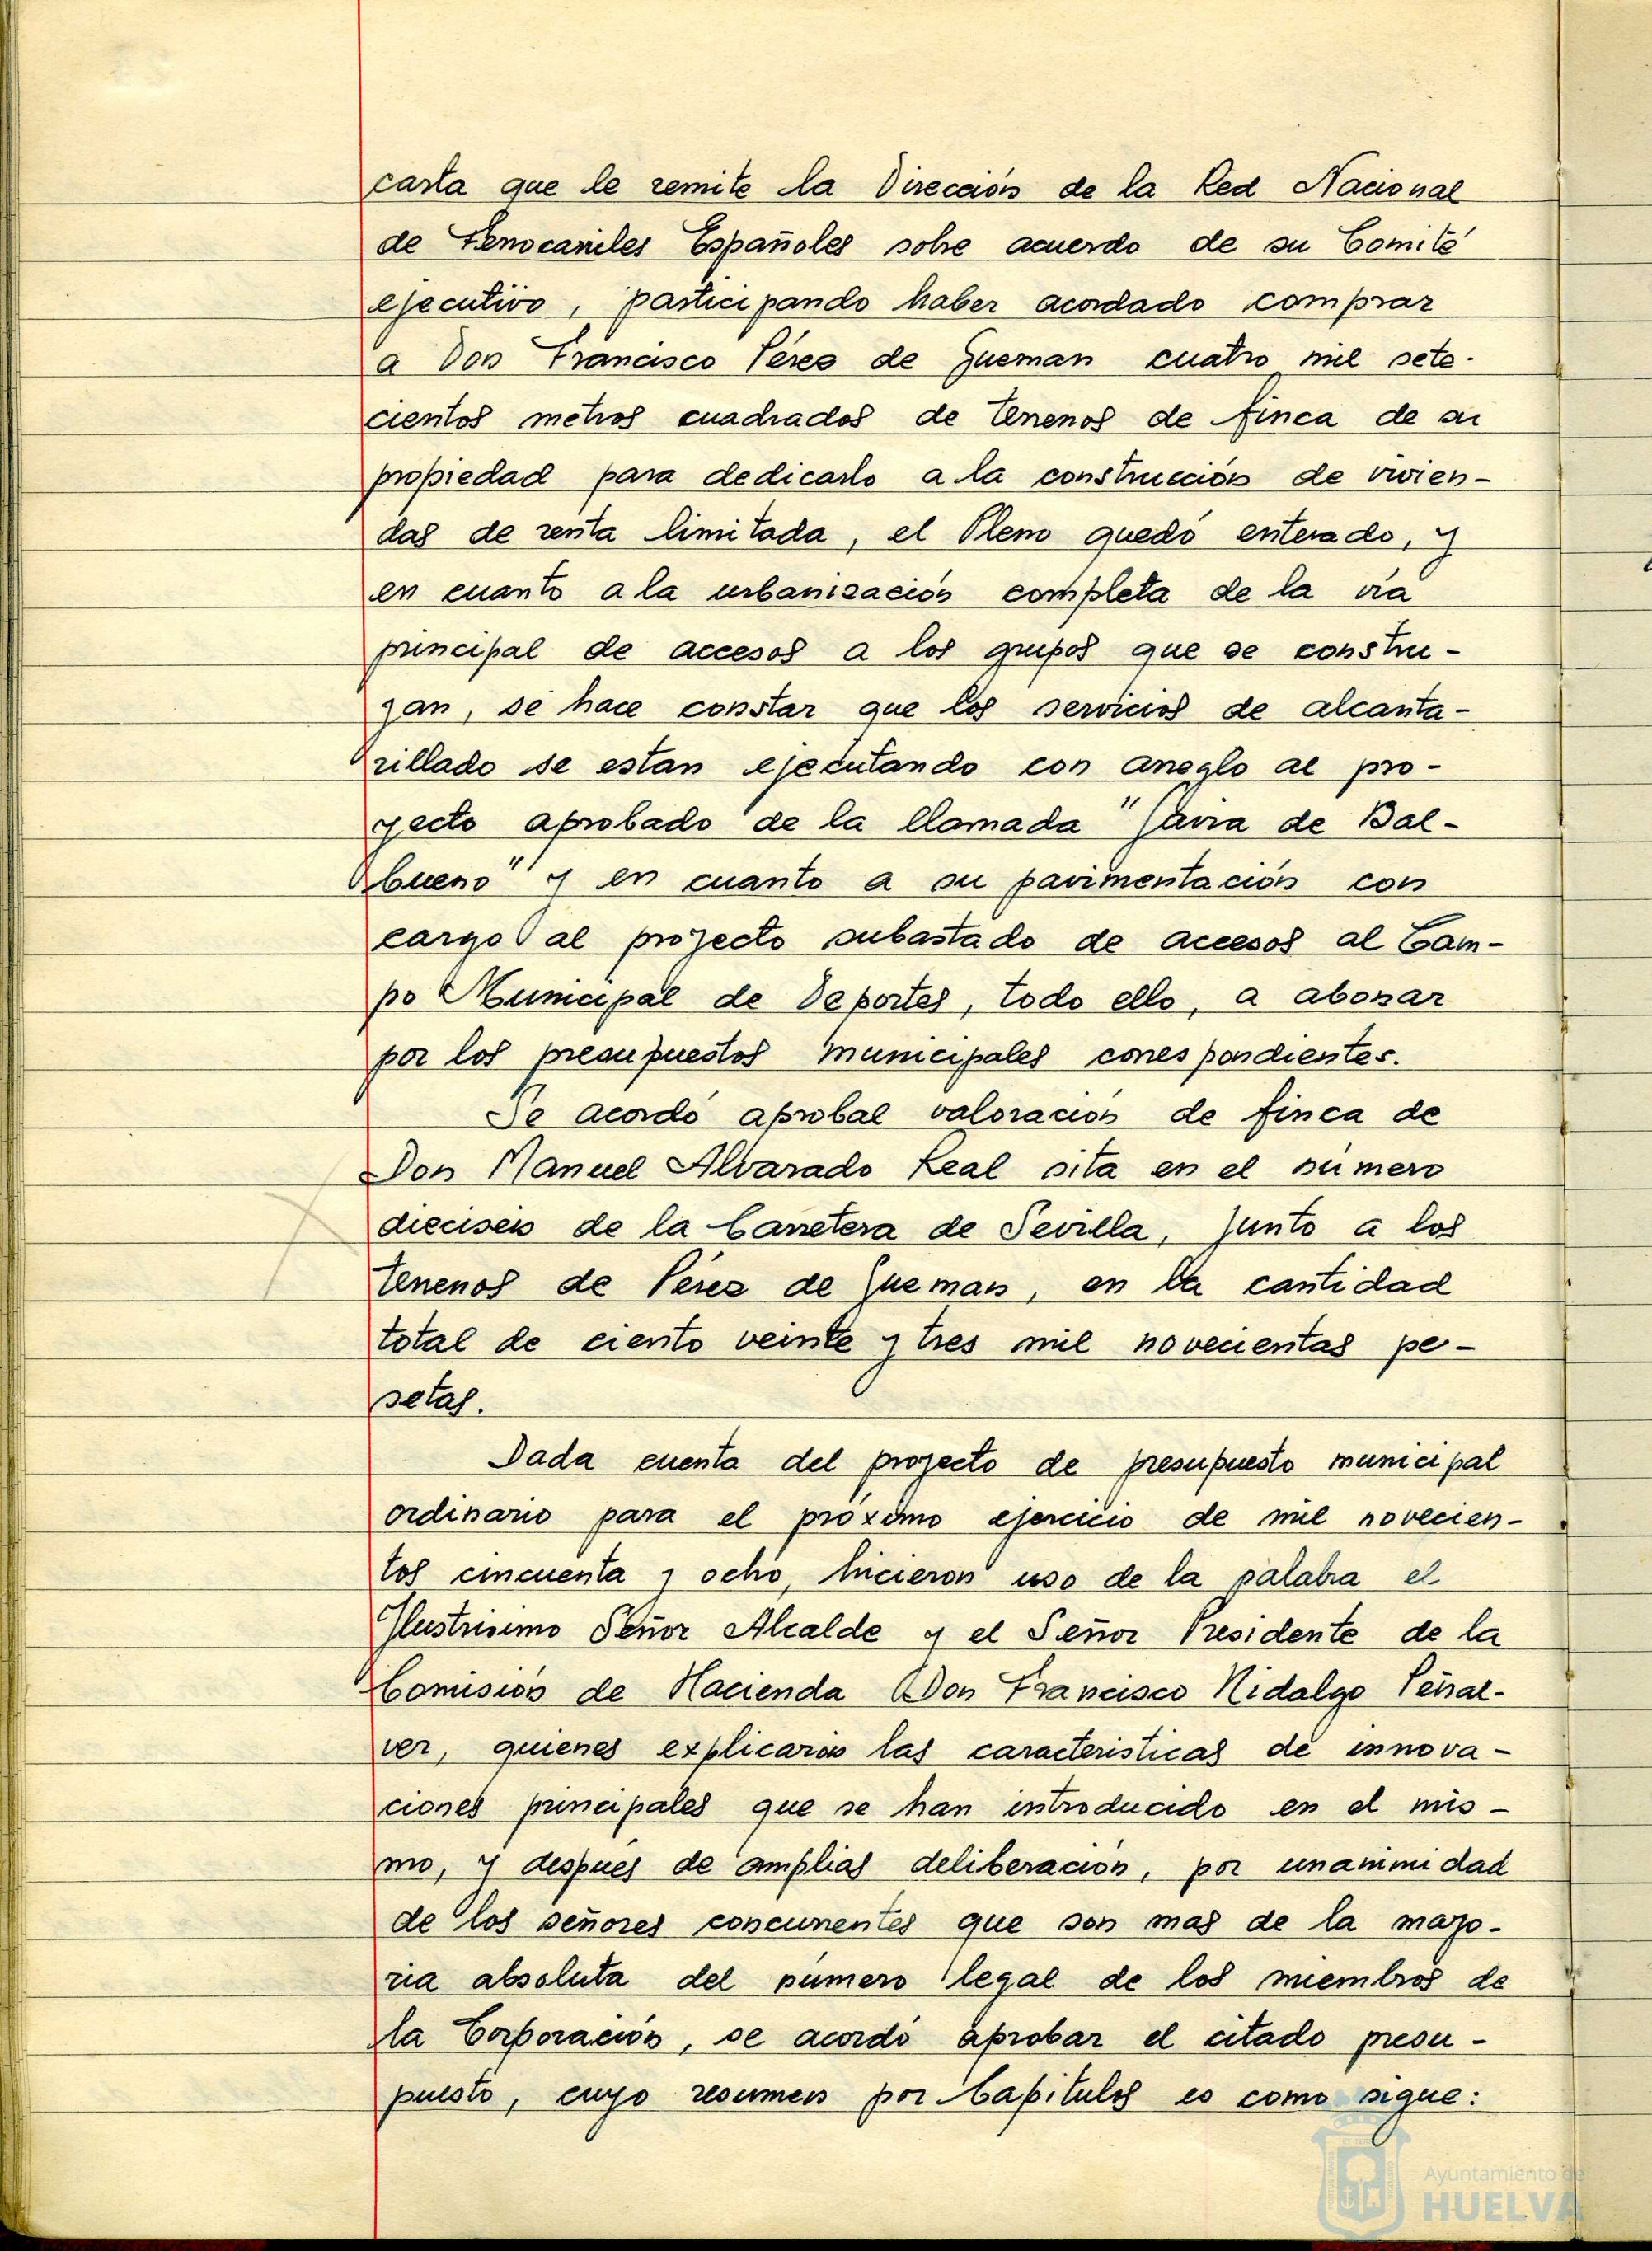 carta que le remite la Dirección de la Red Nacional
de Ferrocarriles Españoles sobre acuerdo de su Comité
ejecutivo, participando haber acordado comprar
a Don Francisco Pérez de Guzman cuatro mil sete-
cientos metros cuadrados de terrenos de finca de su
propiedad para dedicarlo a la construcción de vivien-
das de renta limitada, el Pleno quedó enterado, y
en cuanto a la urbanización completa de la vía
principal de accesos a los grupos que se constru-
yan, se hace constar que los servicios de alcanta-
rillado se estan ejecutando con arreglo al pro-
yecto aprobado de la llamada "Gavia de Bal-
bueno" y en cuanto a su pavimentación con
cargo al proyecto subastado de accesos al Cam-
po Municipal de Deportes, todo ello, a abonar
por los presupuestos municipales correspondientes.
Se acordó aprobal valoración de finca de
Don Manuel Alvarado Leal sita en el número
dieciseis de la Carretera de Sevilla, junto a los
terrenos de Pérez de Guzman, en la cantidad
total de ciento veinte y tres mil novecientas pe-
setas.
Dada cuenta del proyecto de presupuesto municipal
ordinario para el próximo ejercicio de mil novecien-
tos cincuenta y ocho, hicieron uso de la palabra el
Ilustrisimo Señor Alcalde y el Señor Presidente de la
Comisión de Hacienda Don Francisco Hidalgo Peñal-
ver, quienes explicaron las caracteristicas de innova-
ciones principales que se han introducido en el mis-
mo, y despues de amplias deliberación, por unanimidad
de los señores concurrentes que son mas de la mayo-
ria absoluta del número legal de los miembros de
la Corporación, se acordó aprobar el citado presu-
puesto, cuyo resumen por Capitulos es como sigue:
Ayuntamiento de
HUELVA